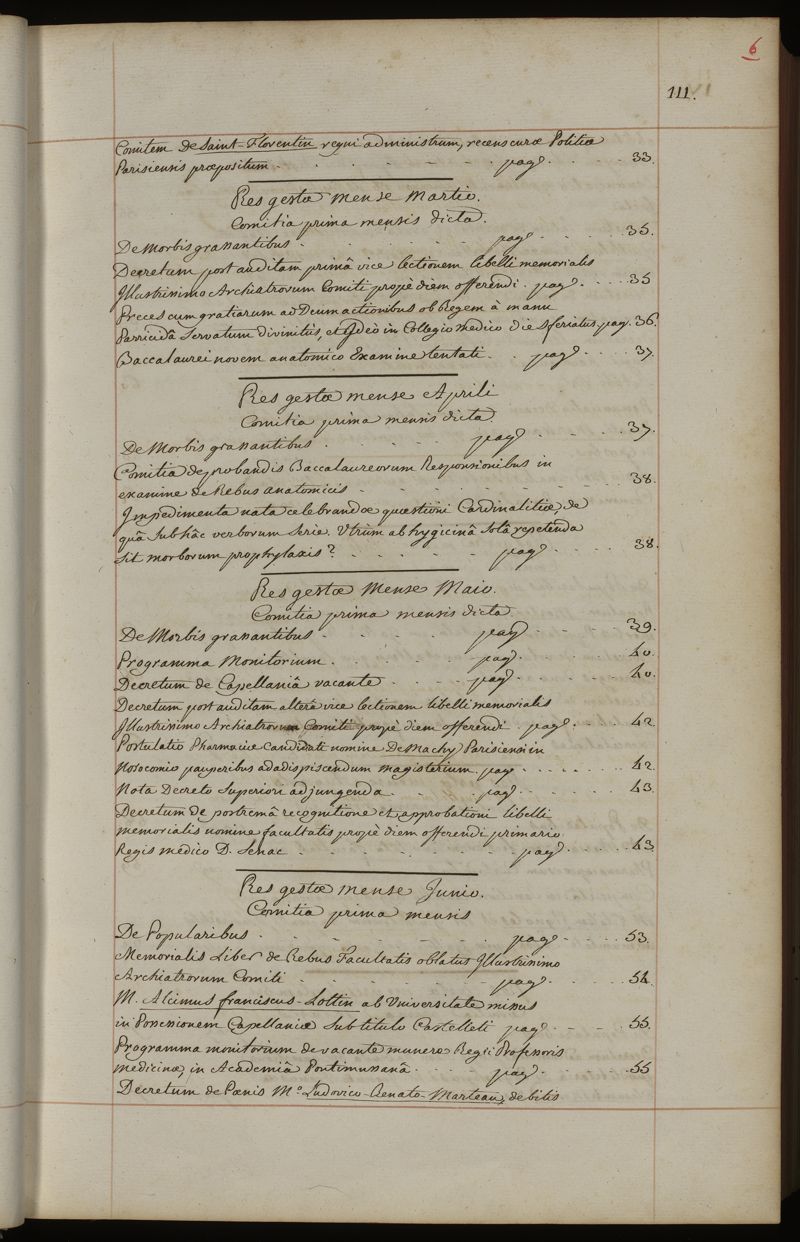 6
III.
Comitem de Saint-Florentin regni administrum, recens curæ Politiæ
Parisiensis præpositum . . . . . . . pag. . . . 33.
Res gestæ mense Martio.
Comitia prima mensis dicta.
De Morbis grassantibus . . . . . . pag . . . . 35.
Decretum post auditam primâ vice lectionem libelli memorialis
Illustrissimo Archiatrorum Comiti propè diem offerendi . pag. . . . . 35
Preces cum gratiarum ad Deum actionibus ob Regem à manu
Parricidâ Servatum divinitùs, et Ideò in Collegio medico dies feriatus. pag. 36.
Baccalaurei novem anatomico Examine tentati . . pag. . . . . 37.
Res gestæ mense Aprili
Comitia prima mensis dicta.
De Morbis grassantibus . . . . . pag. . . . . 37.
Comitia de probandis Baccalaureorum Responsionibus in
examine de Rebus anatomicis . . . . . . . . . . 38.
Impedimenta nata celebrandæ quæstioni Cardinalitiæ, de
quâ sub hâc verborum serie. Utrùm ab hygieinâ solâ repetenda
sit morborum prophylaxis? . . . . . pag. . . . . 38.
Res gestæ Mense Maio.
Comitia prima mensis dicta
De Morbis grassantibus . . . . . pag. . . . . 39.
Programma Monitorium . . . . . pag. . . . . 40.
Decretum de Capellaniâ vacante . . . . pag. . . . . 40.
Decretum post auditam alterâ vice lectionem libelli memorialis
Illustrissimo Archiatrorum Comiti propè diem offerendi . pag. . . . 42
Postulatio Pharmaciæ Candidati nomine Demachy Parisiensis in
Nosocomio pauperibus ad adispiscendum magisterium . pag. . . . . . . 42.
Nota Decreto Superiori adjungenda . . . . . pag. . . . . . 43
Decretum de postremâ recognitione et approbationi libelli
memorialis nomine facultatis propè diem offerendi primario
Regis medico D. Senac . . . . . . . . pag. . . . . 43
Res gestæ mense Junio.
Comitia prima mensis
De Popularibus . . . . . . . . pag . . . . 53.
Memorialis Liber de Rebus Facultatis oblatus Illustrissimo
Archiatrorum Comiti . . . . . . . pag. . . . . 54.
M. Alcimus franciscus-Lottin ab Universitate missus
in Possessionem Capellaniæ Sub titulo Castelleti pag. . . . 55.
Programma monitorium de vacante munere Regii Professoris
medicinæ, in Academiâ Pontimussanâ . . . . pag. . . . . 55
Decretum de Pænis M.o Ludovico-Renato-Marteau, debitis